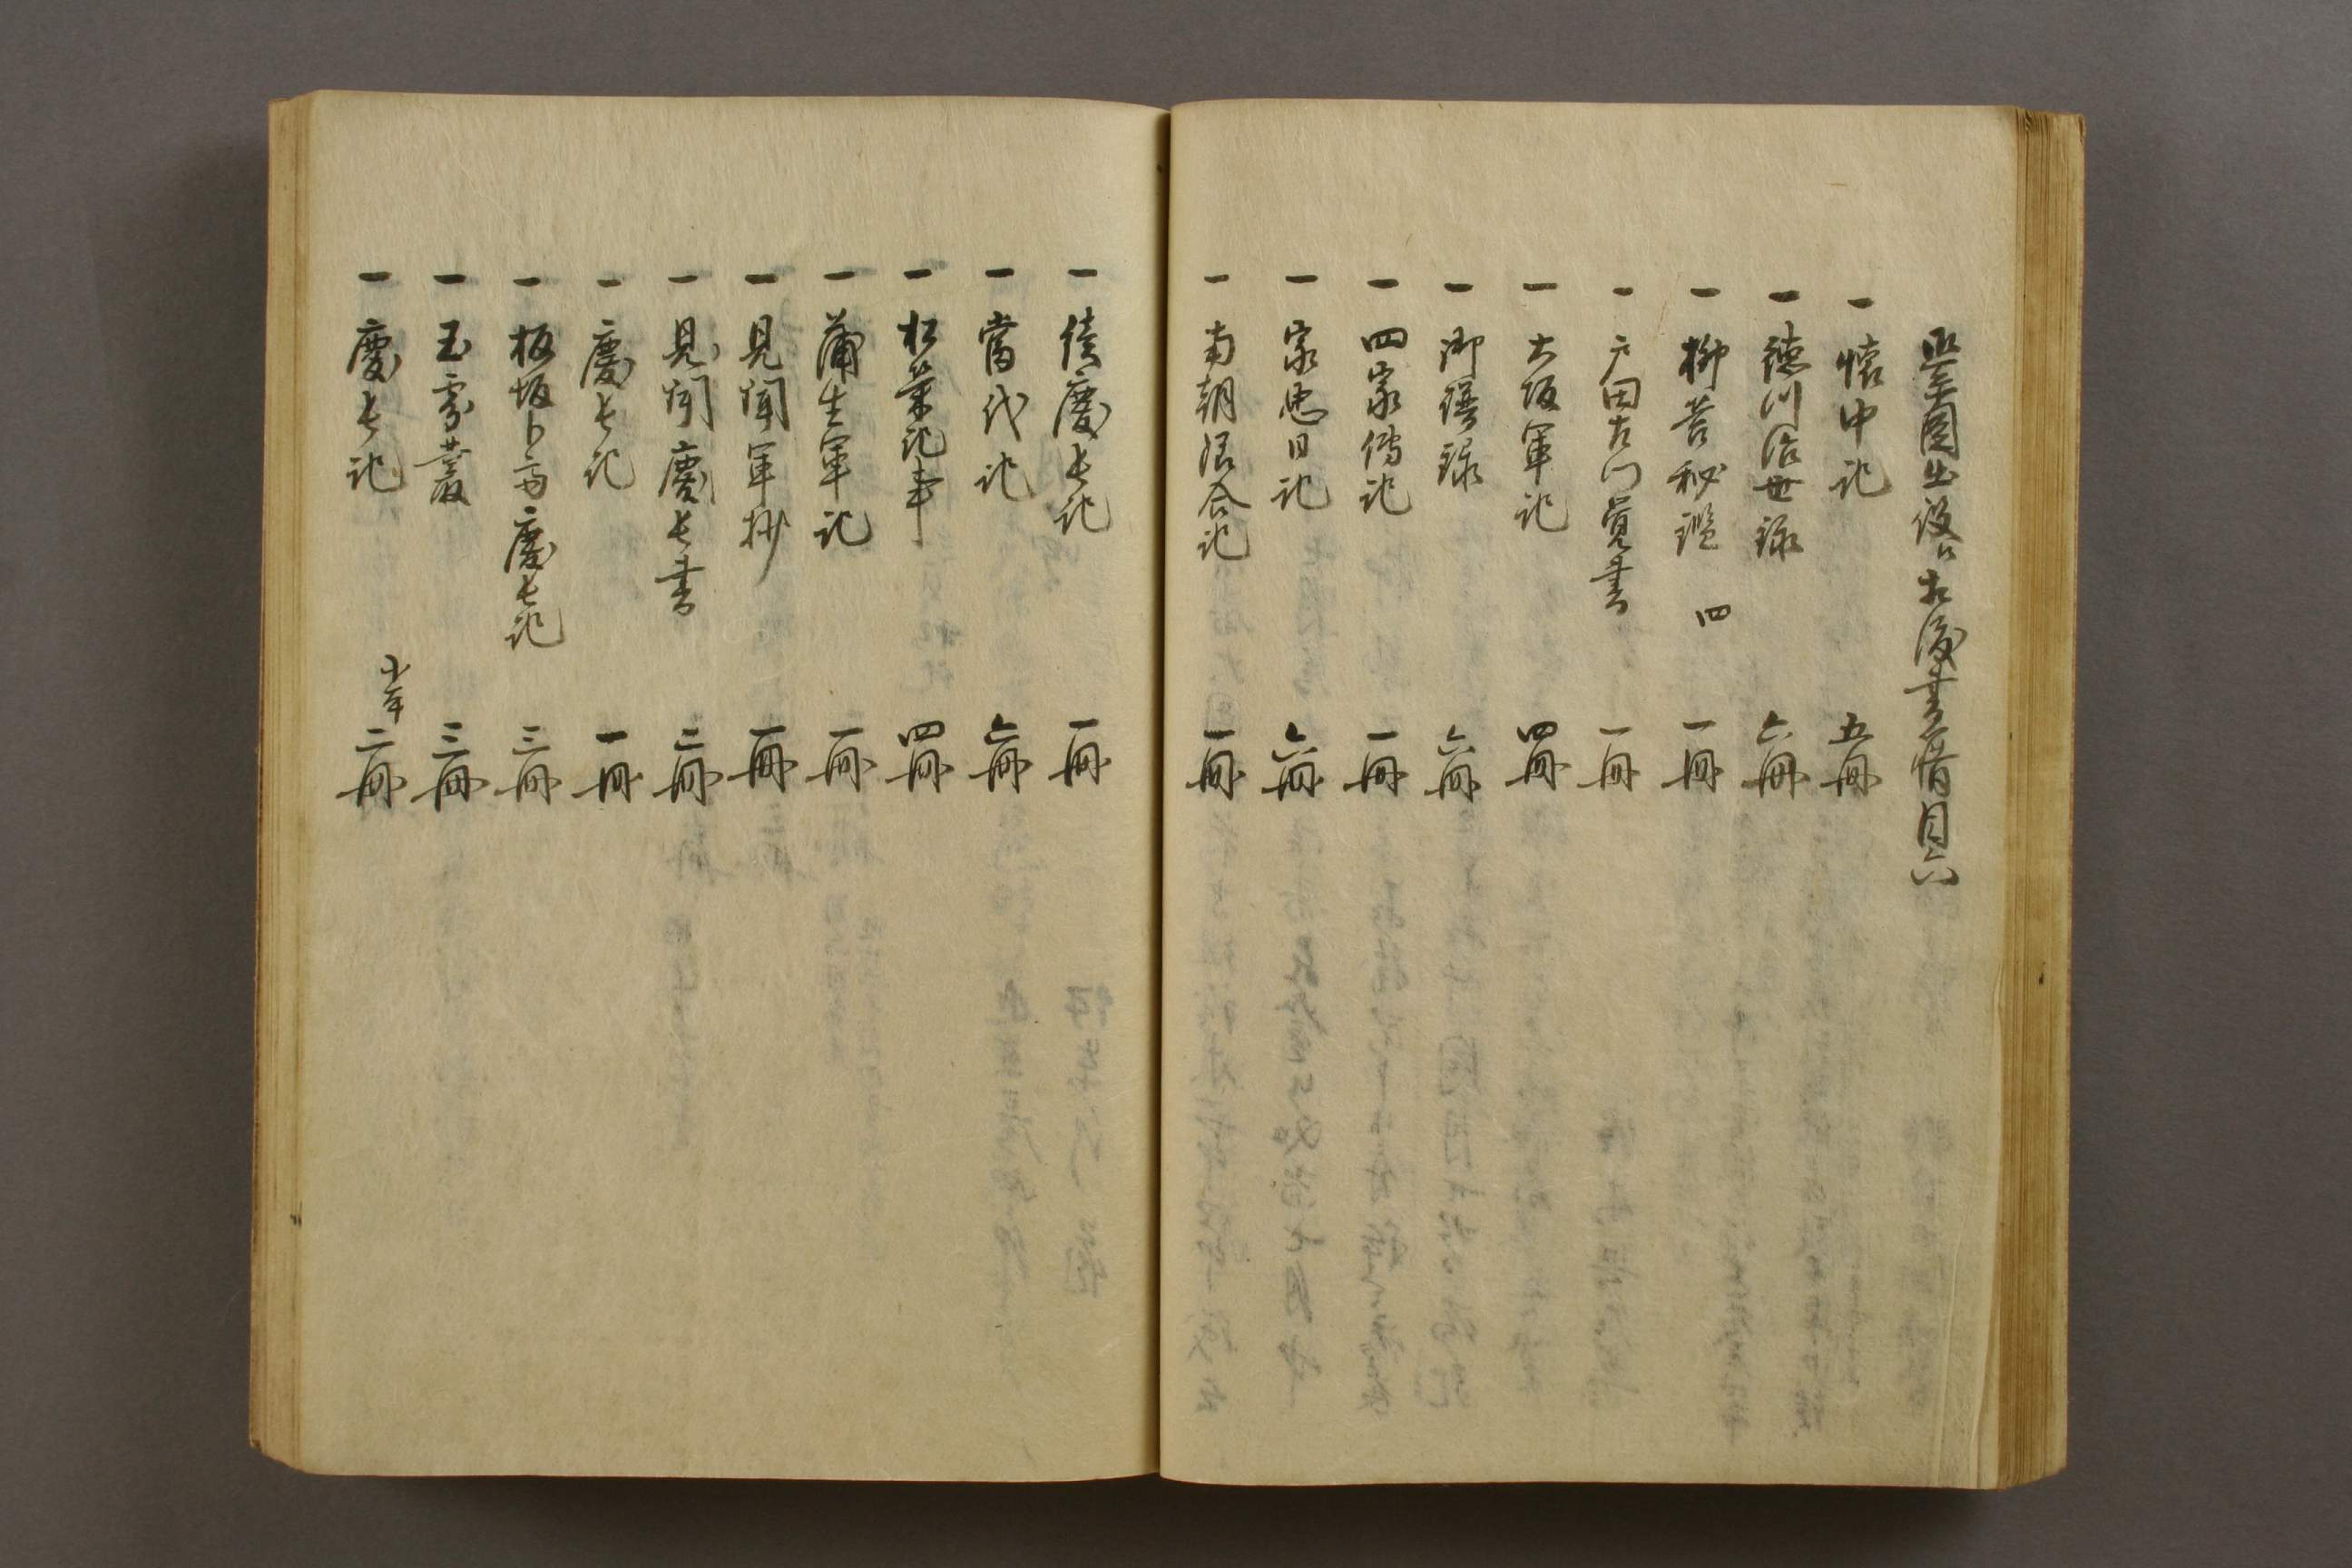 書物目六
一 懐中記 五冊
一 徳川治世録 六冊
一 柳営秘鑑 四 一冊
一 戸田左門覚書 一冊
一 大坂軍記 四冊
一 御譜録 六冊
一 四家傳記 一冊
一 家忠日記 六冊
一 南朝紹介記 一冊
一 續慶長記 一冊
一 當代記 六冊
一 松榮記事 四冊
一 蒲生軍記 一冊
一 見聞軍抄 一冊
一 見聞慶長書 三冊
一 慶長記 一冊
一 板坂卜斎慶長記 三冊
一 玉露叢 三冊
一 慶長記 二冊